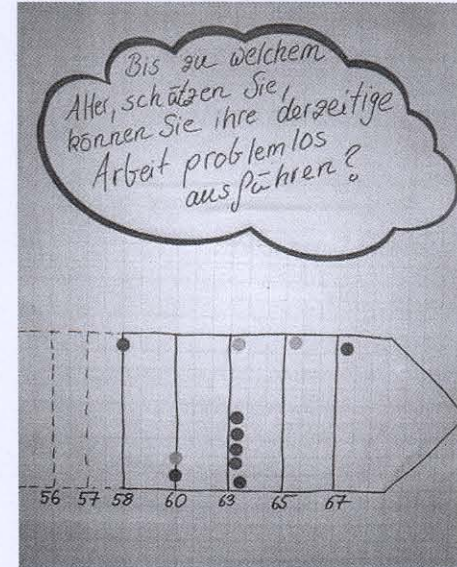 Bis zu welchem
Alter, schätzen Sie,
können Sie ihre derzeitige
Arbeit problemlos
ausführen?
56 57 58 60 63 65 67